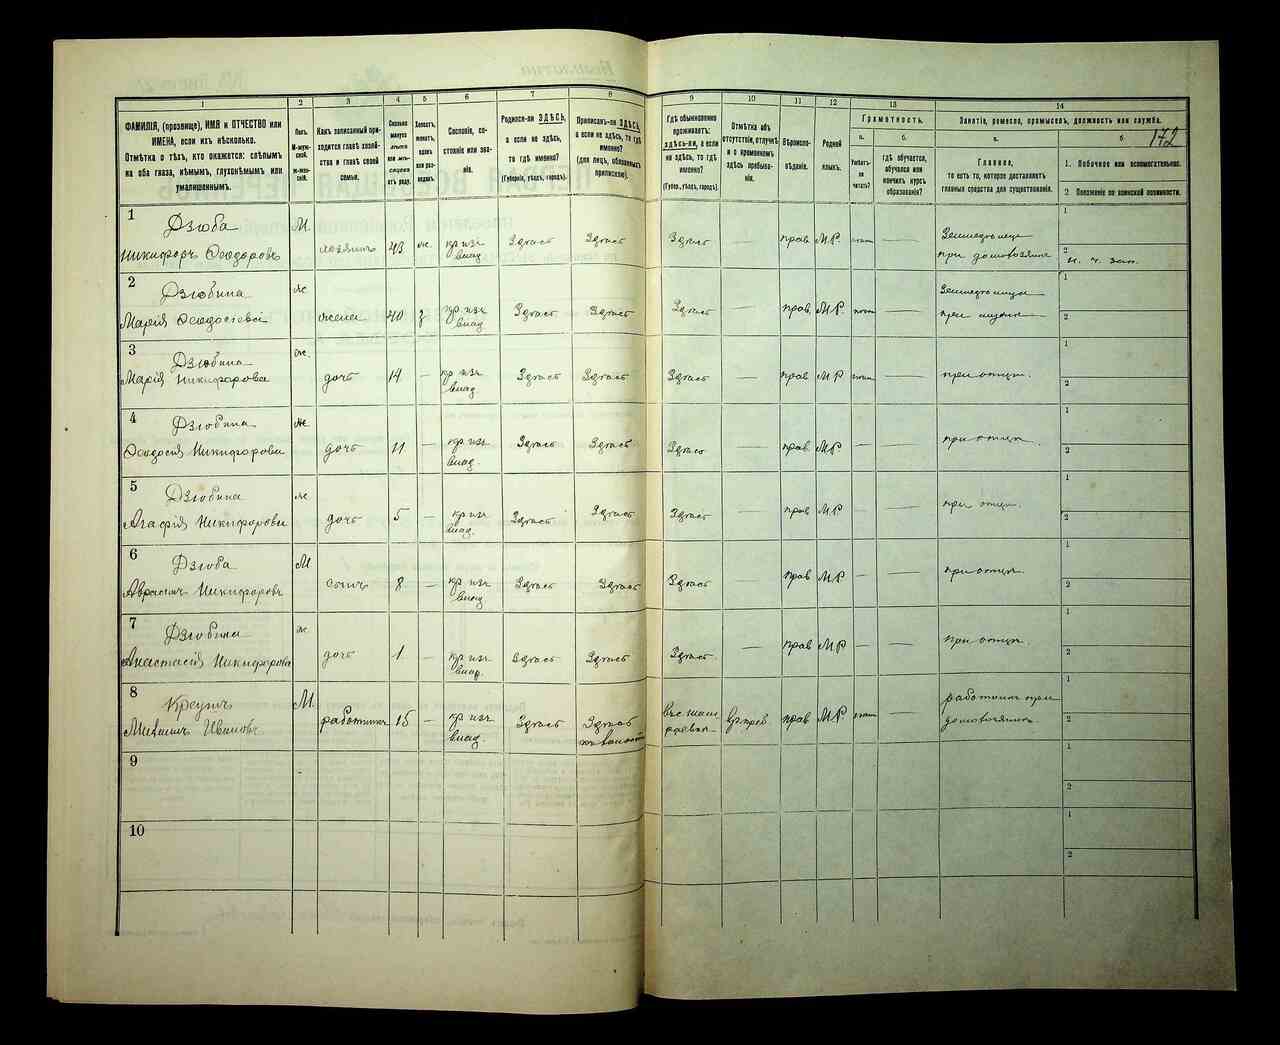 172
1 2 3 4 5 6 7 8 9 10 11 12 13 14
ФАМИЛІЯ, (прозвище), ИМЯ и ОТЧЕСТВО или
ИМЕНА, если ихъ нѣсколько.
Отмѣтка о тѣхъ, кто окажется: слѣпымъ
на оба глаза, нѣмымъ, глухонѣмымъ или
умалишеннымъ.
Полъ.
М-мужской.
Ж-женскій.
Какъ записанный при-
ходится главѣ хозяй-
ства и главѣ своей
семьи.
Сколько
минуло
лѣтъ
или мѣ-
сяцевъ
отъ роду.
Холостъ,
женатъ,
вдовъ
или раз-
веденъ.
Сословіе, со-
стояніе или зва-
ніе.
Родился-ли ЗДѢСЬ,
а если не здѣсь,
то гдѣ именно?
(Губернія, уѣздъ, городъ).
Приписанъ-ли ЗДѢСЬ,
а если не здѣсь, то гдѣ
именно?
(для лицъ, обязанныхъ
припискою).
Гдѣ обыкновенно
проживаетъ:
здѣсь-ли, а если
не здѣсь, то гдѣ
именно?
(Губер., уѣздъ, городъ).
Отмѣтка объ
отсутствіи, отлучкѣ
и о временномъ
здѣсь пребыва-
ніи.
Вѣроиспо-
вѣданіе.
Родной
языкъ.
Грамотность.
а.
Умѣетъ-
ли
читать?
б.
гдѣ обучается,
обучался или
кончилъ курсъ
образованія?
Занятіе, ремесло, промыселъ, должность или служба.
а.
Главное,
то есть то, которое доставляетъ
главныя средства для существованія.
б.
1. Побочное или вспомогательное.
2. Положеніе по воинской повинности.
1
Дзюба М. 1
Никифоръ Ѳеодоровъ хозяинъ 43 ж. кр. изъ влад. Здѣсь Здѣсь Здѣсь — прав. М.Р. — при домохозяинѣ 2
2
Дзюбина ж. 1
Марія жена 40 з кр. изъ влад. Здѣсь Здѣсь Здѣсь — прав. М.Р. — при 2
3
Дзюбина ж. 1
Марія Никифорова дочь 14 — кр. изъ влад. Здѣсь Здѣсь Здѣсь — прав М.Р. — при отцѣ. 2
4
Дзюбина ж. 1
Ѳеодосія Никифорова дочь 11 — кр. изъ влад. Здѣсь Здѣсь Здѣсь — прав М.Р. — — при отцѣ. 2
5
Дзюбина ж. 1
Агафія Никифорова дочь 5 — кр изъ влад. Здѣсь Здѣсь Здѣсь — прав М.Р. — — при отцѣ. 2
6
Дзюба М 1
Никифоровъ сынъ 8 — кр изъ влад Здѣсь Здѣсь Здѣсь — прав М.Р. — — при отцѣ. 2
7
Дзюбина ж. 1
Анастасія Никифорова дочь 1 — кр изъ влад. Здѣсь Здѣсь Здѣсь — прав М.Р. — — при отцѣ. 2
8
М. 1
Ивановъ работникъ 15 — кр изъ влад. Здѣсь Здѣсь прав М.Р. — работникъ при домохозяинѣ 2
9
1
2
10
1
2